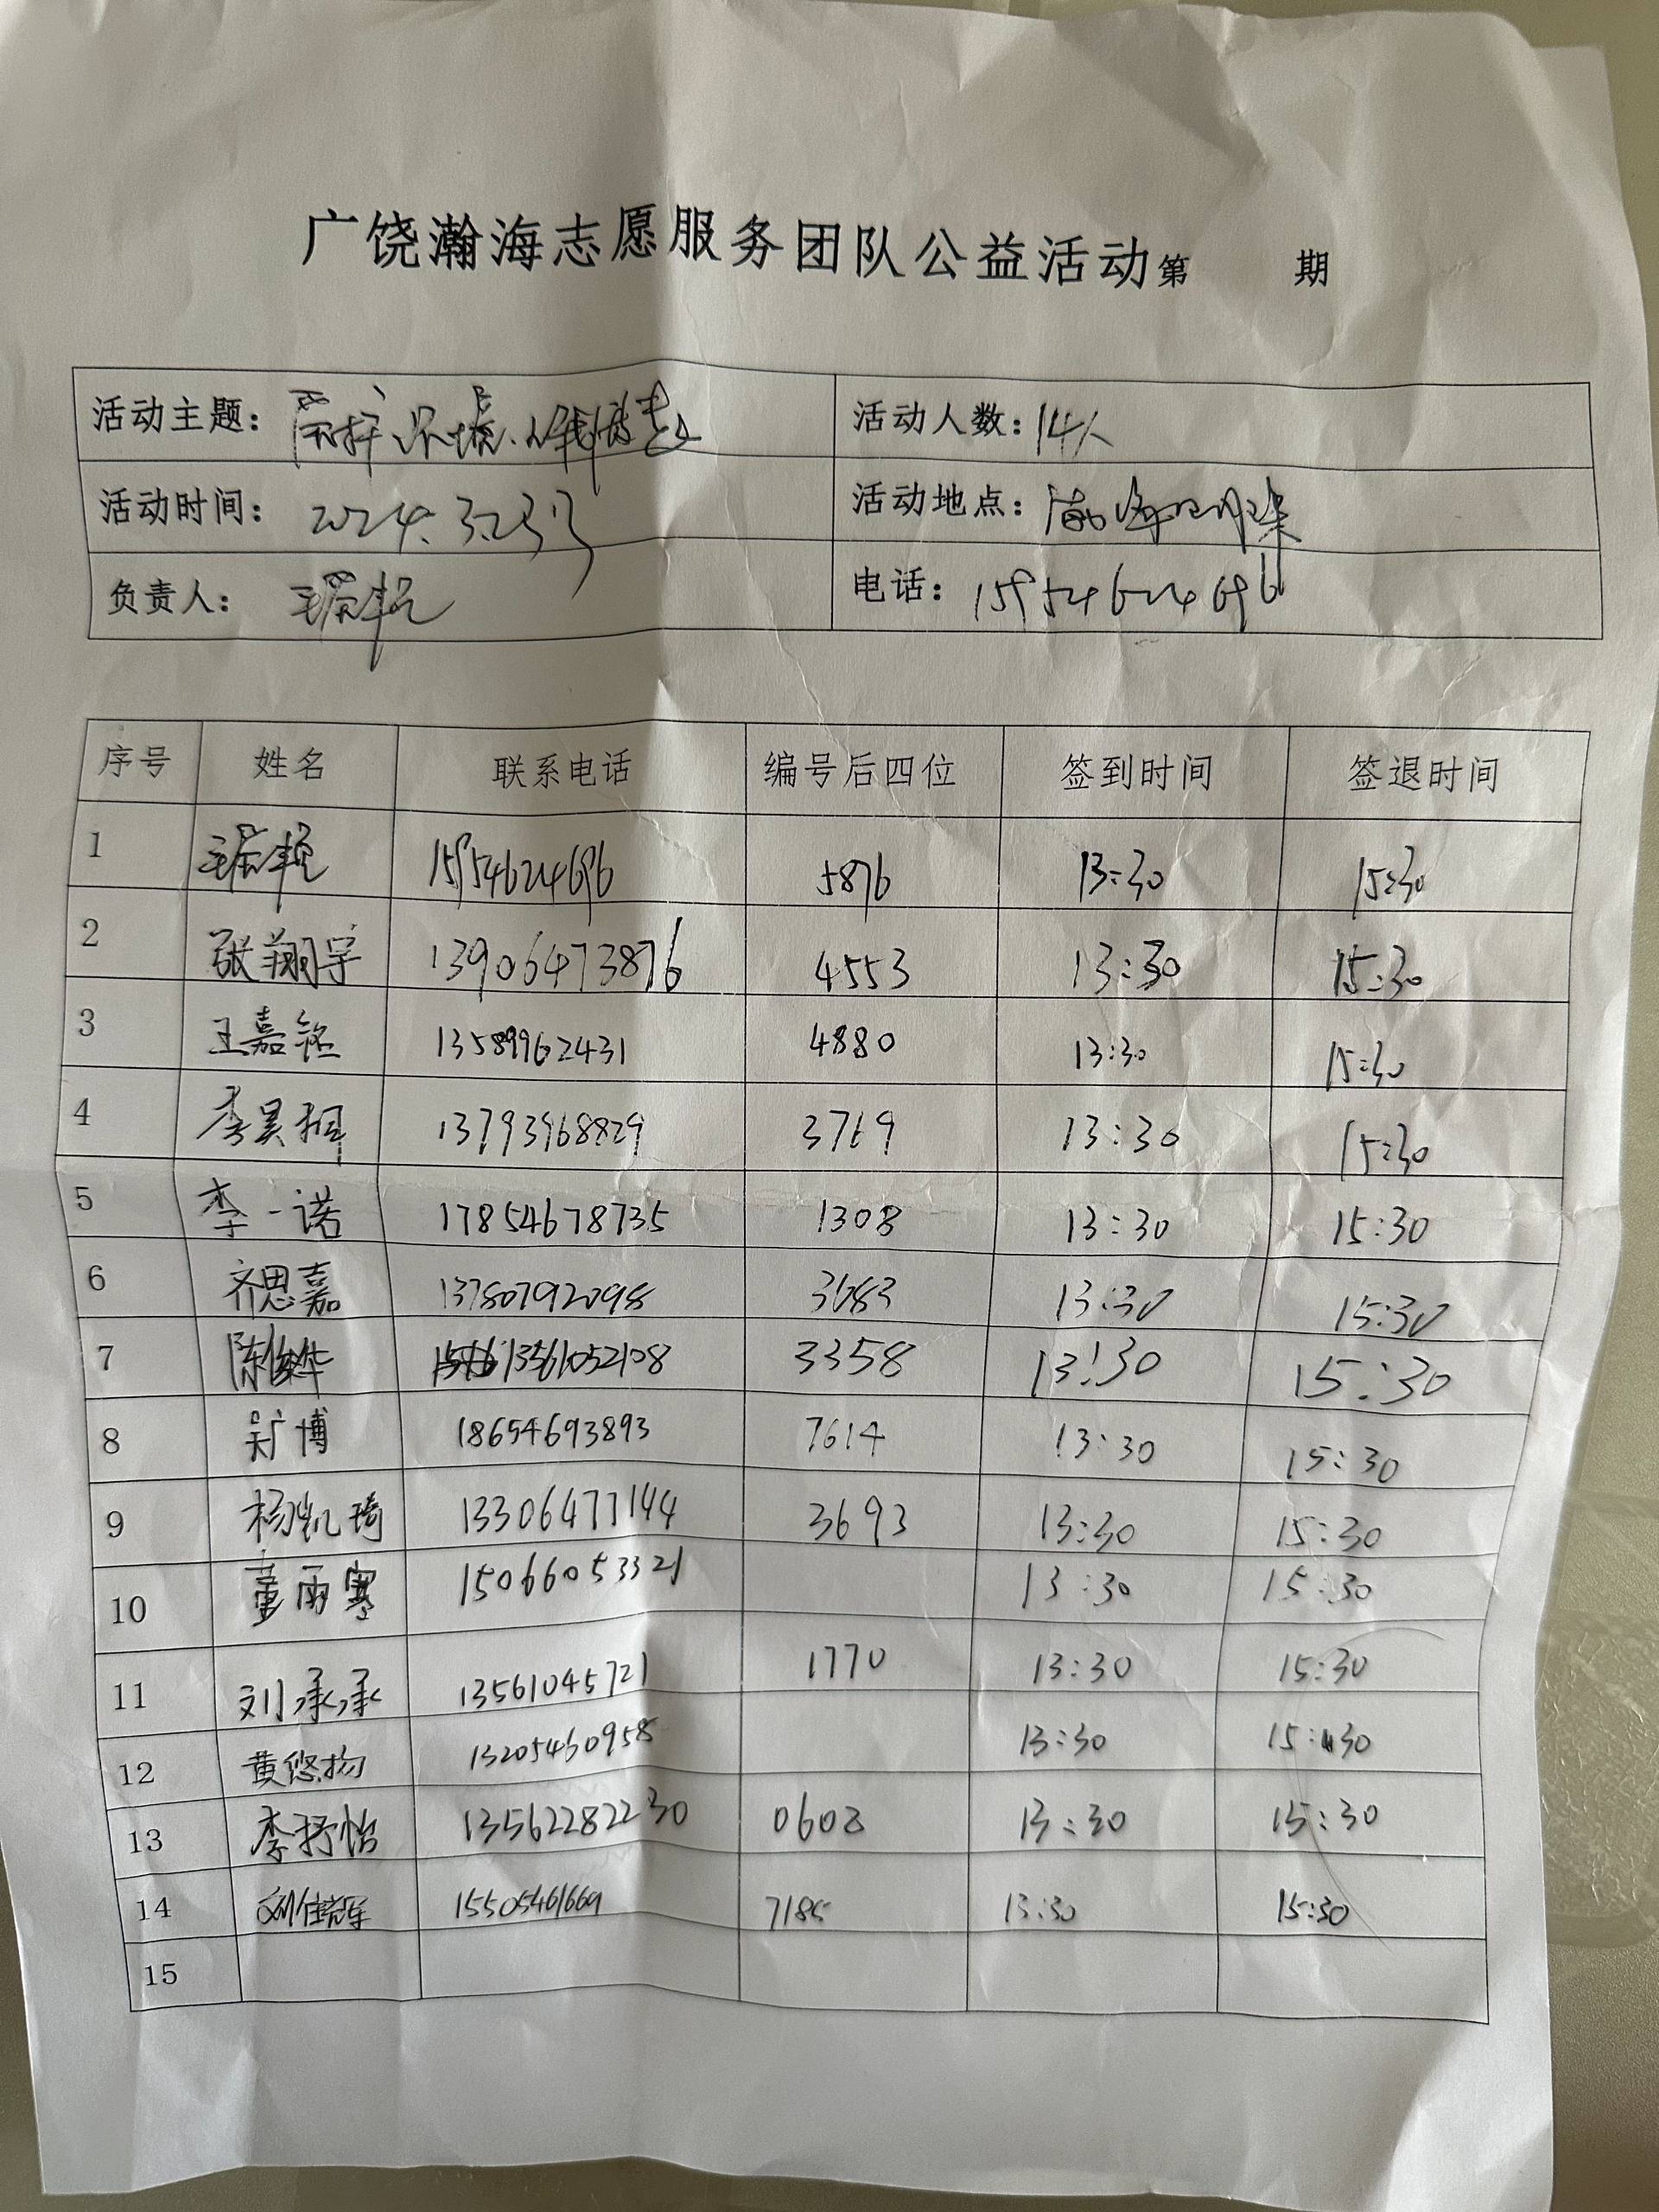 广饶瀚海志愿服务团队公益活动第 期
活动主题： 活动人数：14人
活动时间：2024.3.23日 活动地点：
负责人： 电话：15954624696
序号 姓名 联系电话 编号后四位 签到时间 签退时间
1 15954624696 5876 13:30 15:30
2 张翔宇 13906473876 4553 13:30 15:30
3 王嘉铭 13589962431 4880 13:30 15:30
4 李昊桐 13793968829 3769 13:30 15:30
5 李一诺 17854678735 1308 13:30 15:30
6 齐思嘉 13780792098 3683 13:30 15:30
7 陈俊烨 13561052108 3358 13:30 15:30
8 博 18654693893 7614 13:30 15:30
9 杨凯琦 13306477144 3693 13:30 15:30
10 董雨骞 15066053321 13:30 15:30
11 刘承承 13561045721 1770 13:30 15:30
12 黄悠扬 13205460958 13:30 15:30
13 李抒怡 13562282230 0602 13:30 15:30
14 15505461669 7185 13:30 15:30
15